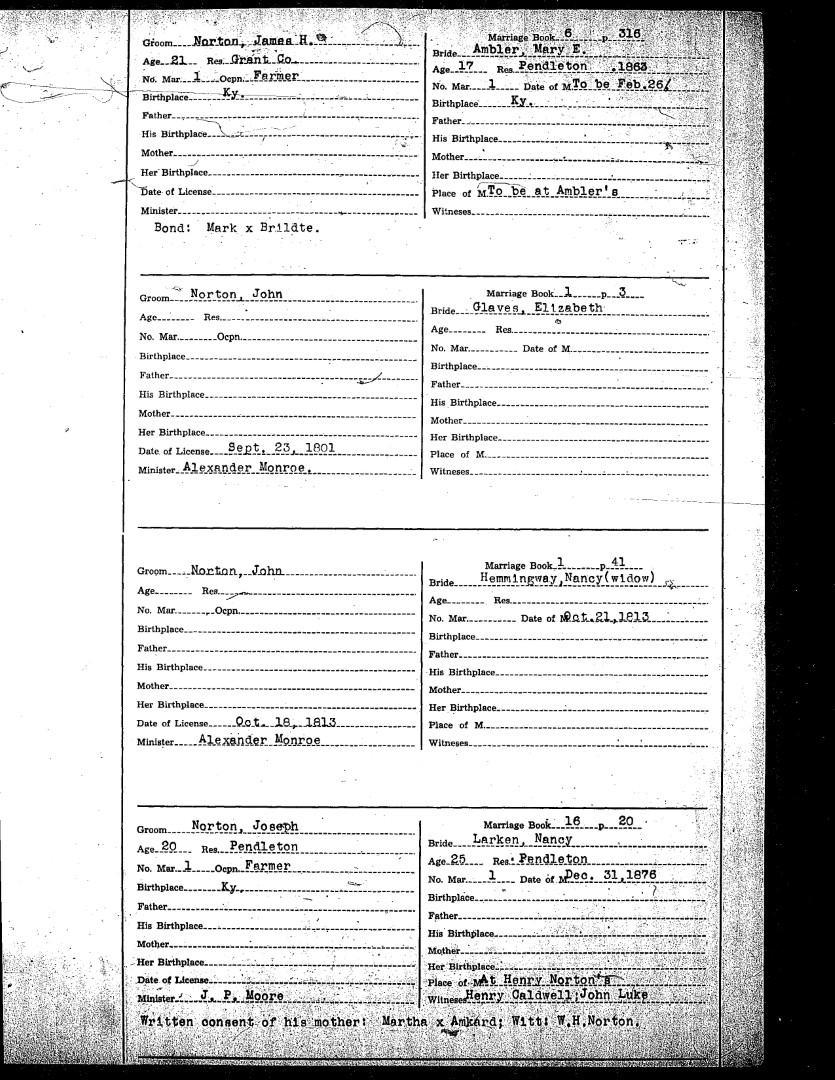 Groom Norton, James H.
Age 21 Res. Grant Co.
No. Mar. 1 Ocpn. Farmer
Birthplace Ky.
Father
His Birthplace
Mother
Her Birthplace
Date of License
Minister
Bond: Mark x Brildte.
Marriage Book 6 p. 316
Bride Ambler, Mary E.
Age 17 Res. Pendleton .1863
No. Mar. 1 Date of M. To be Feb.26/
Birthplace Ky.
Father
His Birthplace
Mother
Her Birthplace
Place of M. To be at Ambler's
Witneses
Groom Norton, John
Age Res.
No. Mar. Ocpn.
Birthplace
Father
His Birthplace
Mother
Her Birthplace
Date of License Sept. 23, 1801
Minister Alexander Monroe.
Marriage Book 1 p. 3
Bride Glaves, Elizabeth
Age Res.
No. Mar. Date of M.
Birthplace
Father
His Birthplace
Mother
Her Birthplace
Place of M.
Witneses
Groom Norton, John
Age Res.
No. Mar. Ocpn.
Birthplace
Father
His Birthplace
Mother
Her Birthplace
Date of License Oct. 18, 1813
Minister Alexander Monroe
Marriage Book 1 p. 41
Bride Hemmingway, Nancy(widow)
Age Res.
No. Mar. Date of M. Oct.21,1813
Birthplace
Father
His Birthplace
Mother
Her Birthplace
Place of M.
Witneses
Groom Norton, Joseph
Age 20 Res. Pendleton
No. Mar. 1 Ocpn. Farmer
Birthplace Ky.
Father
His Birthplace
Mother
Her Birthplace
Date of License
Minister J. P. Moore
Marriage Book 16 p. 20
Bride Larken, Nancy
Age 25 Res. Pendleton
No. Mar. 1 Date of M. Dec. 31,1876
Birthplace
Father
His Birthplace
Mother
Her Birthplace
Place of M. At Henry Norton's
Witneses Henry Caldwell;John Luke
Written consent of his mother: Martha x Amkard; Witt: W.H.Norton.